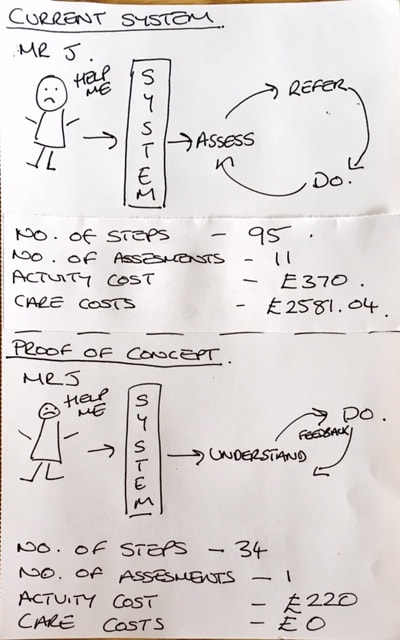 CURRENT SYSTEM.
MR J.
HELP
ME
SYSTEM
ASSESS
REFER
DO.
NO. OF STEPS - 95.
NO. OF ASSESMENTS - 11
ACTIVITY COST - £370.
CARE COSTS - £2581.04.
PROOF OF CONCEPT.
MR J
HELP
ME
SYSTEM
UNDERSTAND
DO.
FEEDBACK
NO. OF STEPS - 34
NO. OF ASSESMENTS - 1
ACTIVITY COST - £220
CARE COSTS - £0